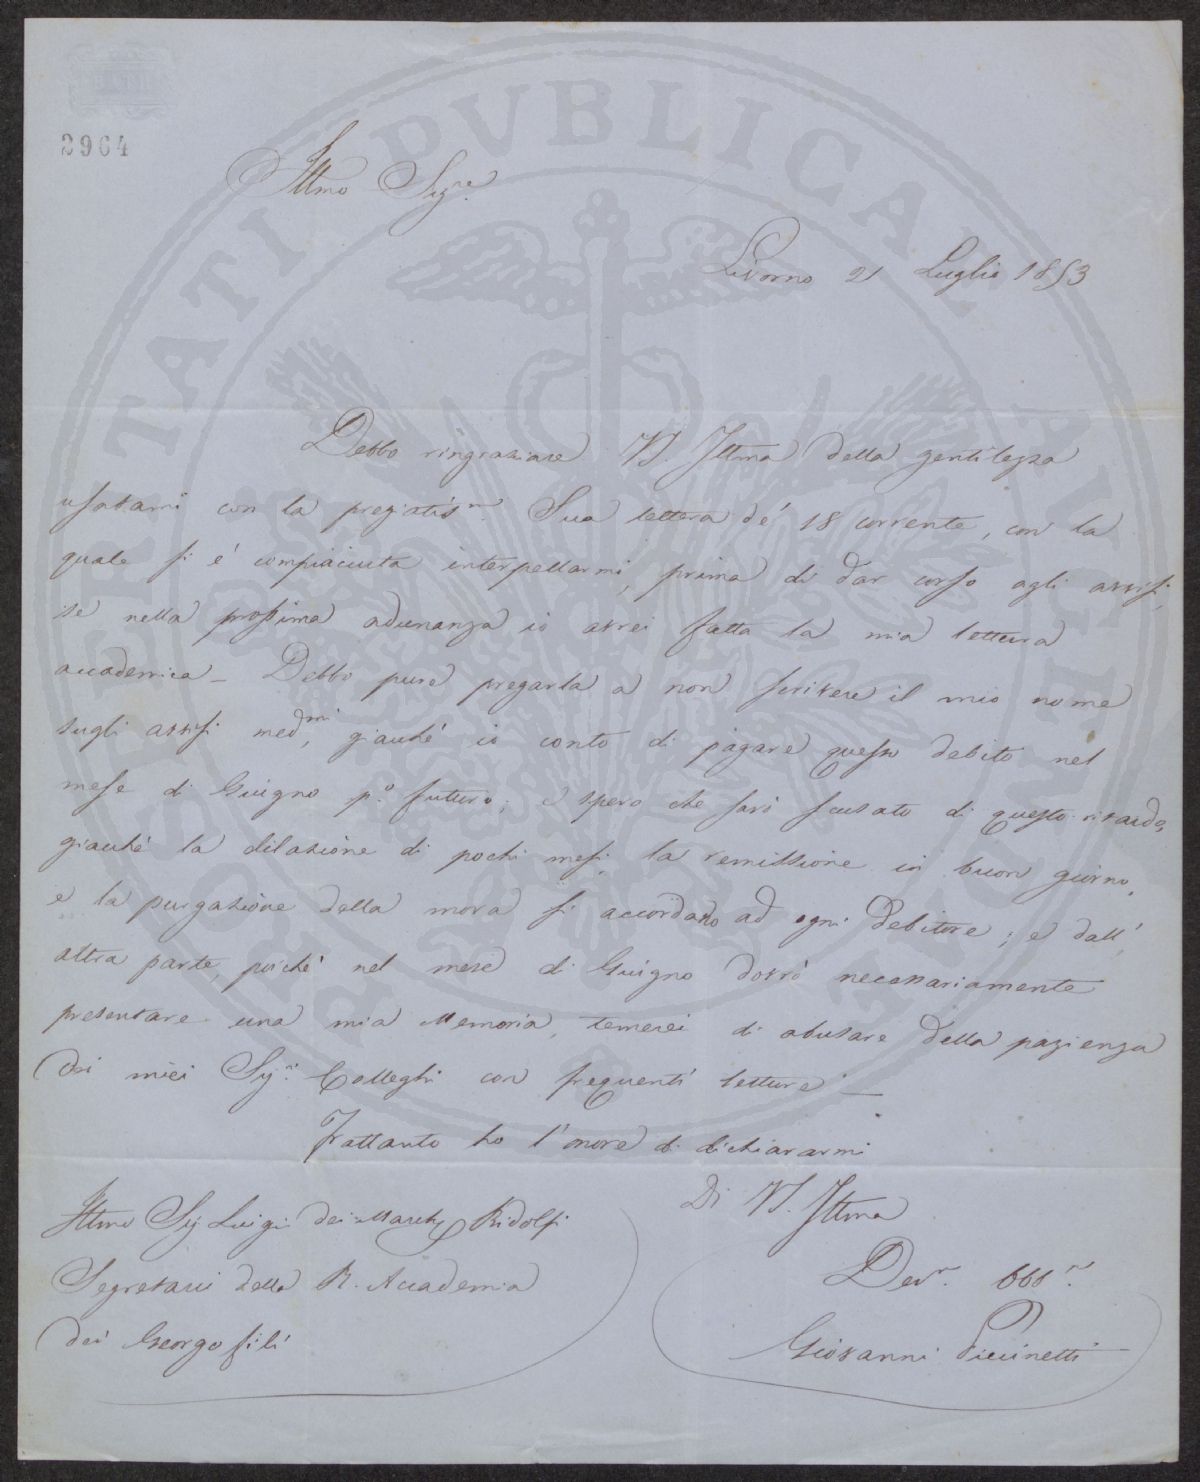 2964
Illmo Sigre
Livorno 21 Luglio 1853
Debbo ringraziare VS. Illma della gentilezza
usatami con la pregiatisma Sua lettera de' 18 corrente, con la
quale si è compiaciuta interpellarmi, prima di dar corso agli avvisi,
se nella prossima adunanza io avrei fatta la mia lettura
accademica _ Debbo pure pregarla a non scrivere il mio nome
sugli avvisi medmi, giacché io conto di pagare questo debito nel
mese di Giugno po futuro; e spero che sarò scusato di questo ritardo,
giacché la dilazione di pochi mesi, la remissione in buon giorno,
e la purgazione della mora si accordano ad ogni Debitore; e dall'
altra parte, poiché nel mese di Giugno dovrò necessariamente
presentare una mia Memoria, temerei di abusare della pazienza
dei miei Sigri Colleghi con frequenti letture _
Frattanto ho l'onore di dichiararmi
Di VS. Illma
Illmo Sig Luigi dei March Ridolfi
Segretario della R. Accademia
dei Georgofili
Devmo Obbmo
Giovanni Piccinetti
PVBLICAE
PROSPERITATI